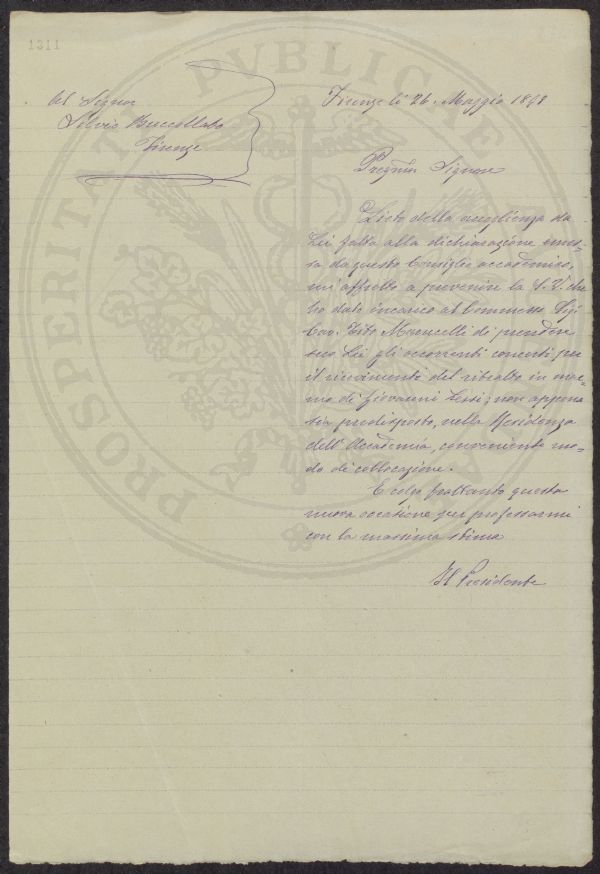 1311
Firenze li 26. Maggio 1898
Al Signor
Silvio
Firenze
Pregmo Signore
Lieto della accoglienza da
Lei fatta alla dichiarazione emes-
sa da questo Consiglio accademico,
mi affretto a prevenire la S. V. che
ho dato incarico al Commesso Sig.
Cav. Tito Marucelli di prendere
seco Lei gli occorrenti concerti per
il ricevimento del ritratto in mar-
mo di Giovanni non appena
sia predisposto, nella Residenza
dell'Accademia, conveniente mo-
do di collocazione.
E colgo frattanto questa
nuova occasione per professarmi
con la massima stima
Il Presidente
PROSPERITATI PVBLICAE